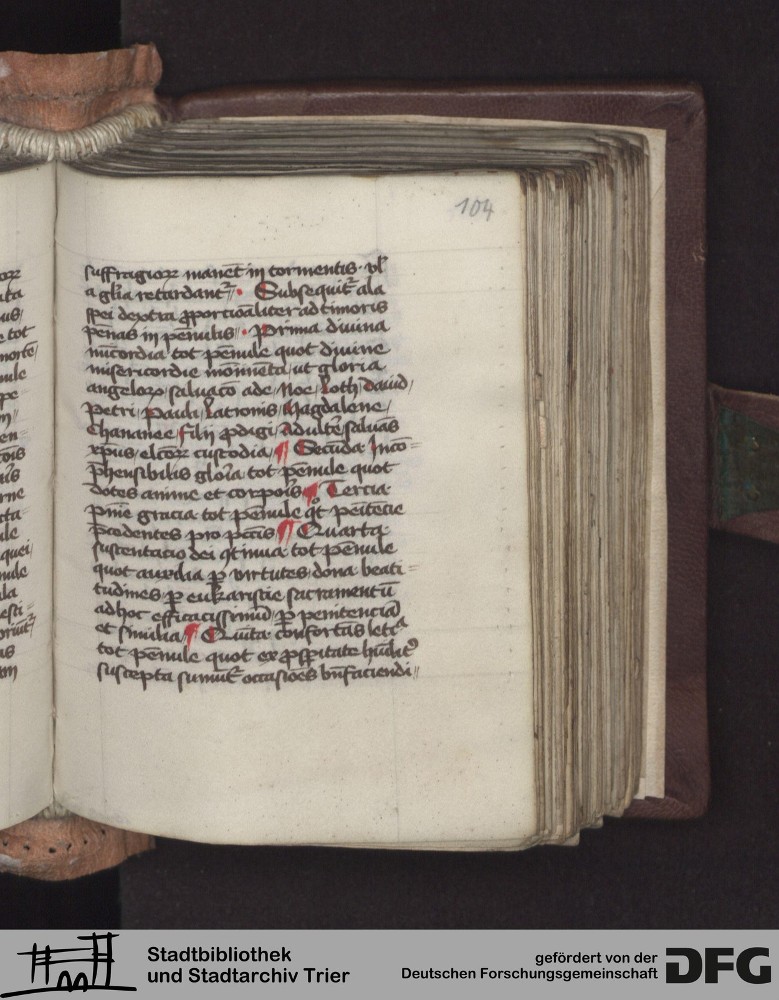 104
suffragiorꝝ manēt in tormentis· vl̓
a gl̄ia retardant᷑· Subsequit᷑ ala
spei dextra ꝓportiōaliter ad timoris
pēnas in pēnulis· Prima diuina
mīcordia tot pēnule quot diuine
misericordie monimēta, ut gloria
angeloꝝ, saluacō ade, Noe, Loth, dauid,
Petri, Paula, Latronis, Magdalene,
Chananee, filij ꝓdigi, Adultē, saluās
xp̄us, custodia, ¶ Secūda Inco=
p̄hensibilis glōia tot pēnule quot
dotes anime et corpoīs ¶ Tercia
gracia tot pēnule qt peītēcie
p̄cedentes pro pctīs ¶ Quarta
sustentacio dei ꝯtinua tot pēnule
quot auxilia ꝑ virtutes, dona, beati=
tudines, ꝑ eukaristie sacramentū
ad hoc efficacissimū, ꝑ penitenciā
et similia ¶ Quīta confortās leticᵃ
tot pēnule quot ex ꝓspitate hūilit᷑
suscepta sumūt᷑ occasiōes bn̄faciendi
Stadtbibliothek
und Stadtarchiv Trier
gefördert von der
Deutschen Forschungsgemeinschaft
DFG